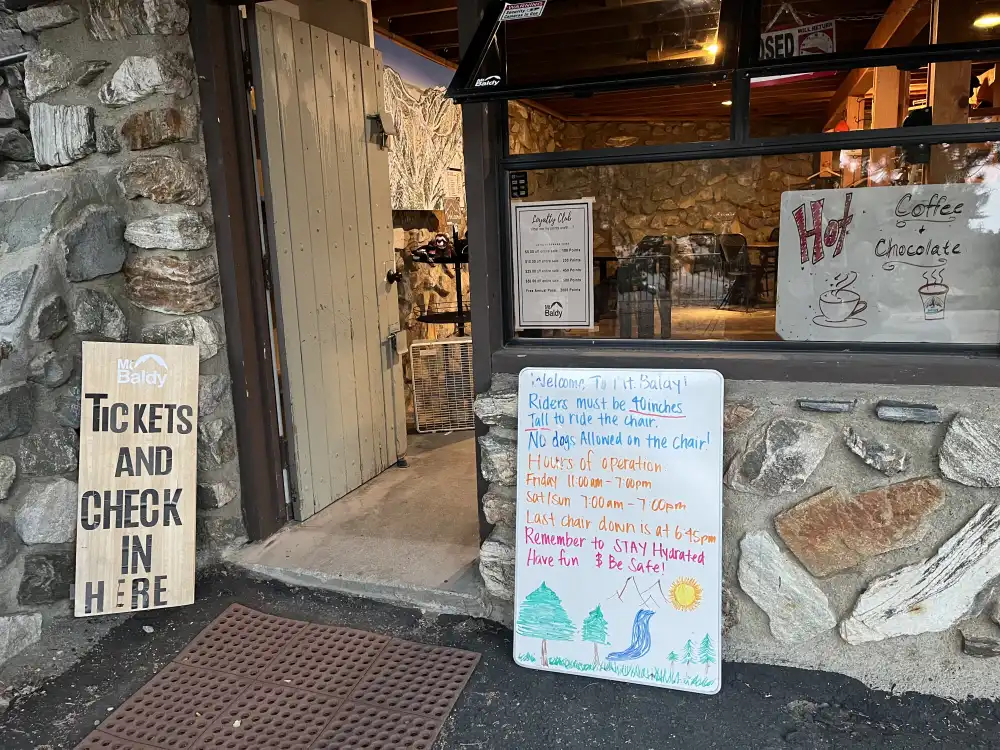 Mt Baldy
TICKETS
AND
CHECK
IN
HERE
WARNING
Security Cameras in Use
Mt Baldy
CLOSED
WILL RETURN
Loyalty Club
Free Annual Pass
Mt Baldy
Hot
Coffee
+
Chocolate
Welcome To Mt. Baldy!
Riders must be 40inches
Tall to ride the chair.
No dogs Allowed on the chair!
Hours of operation
Friday 11:00am - 7:00pm
Sat/Sun 7:00am - 7:00pm
Last chair down is at 6:45pm
Remember to STAY Hydrated
Have fun $ Be Safe!